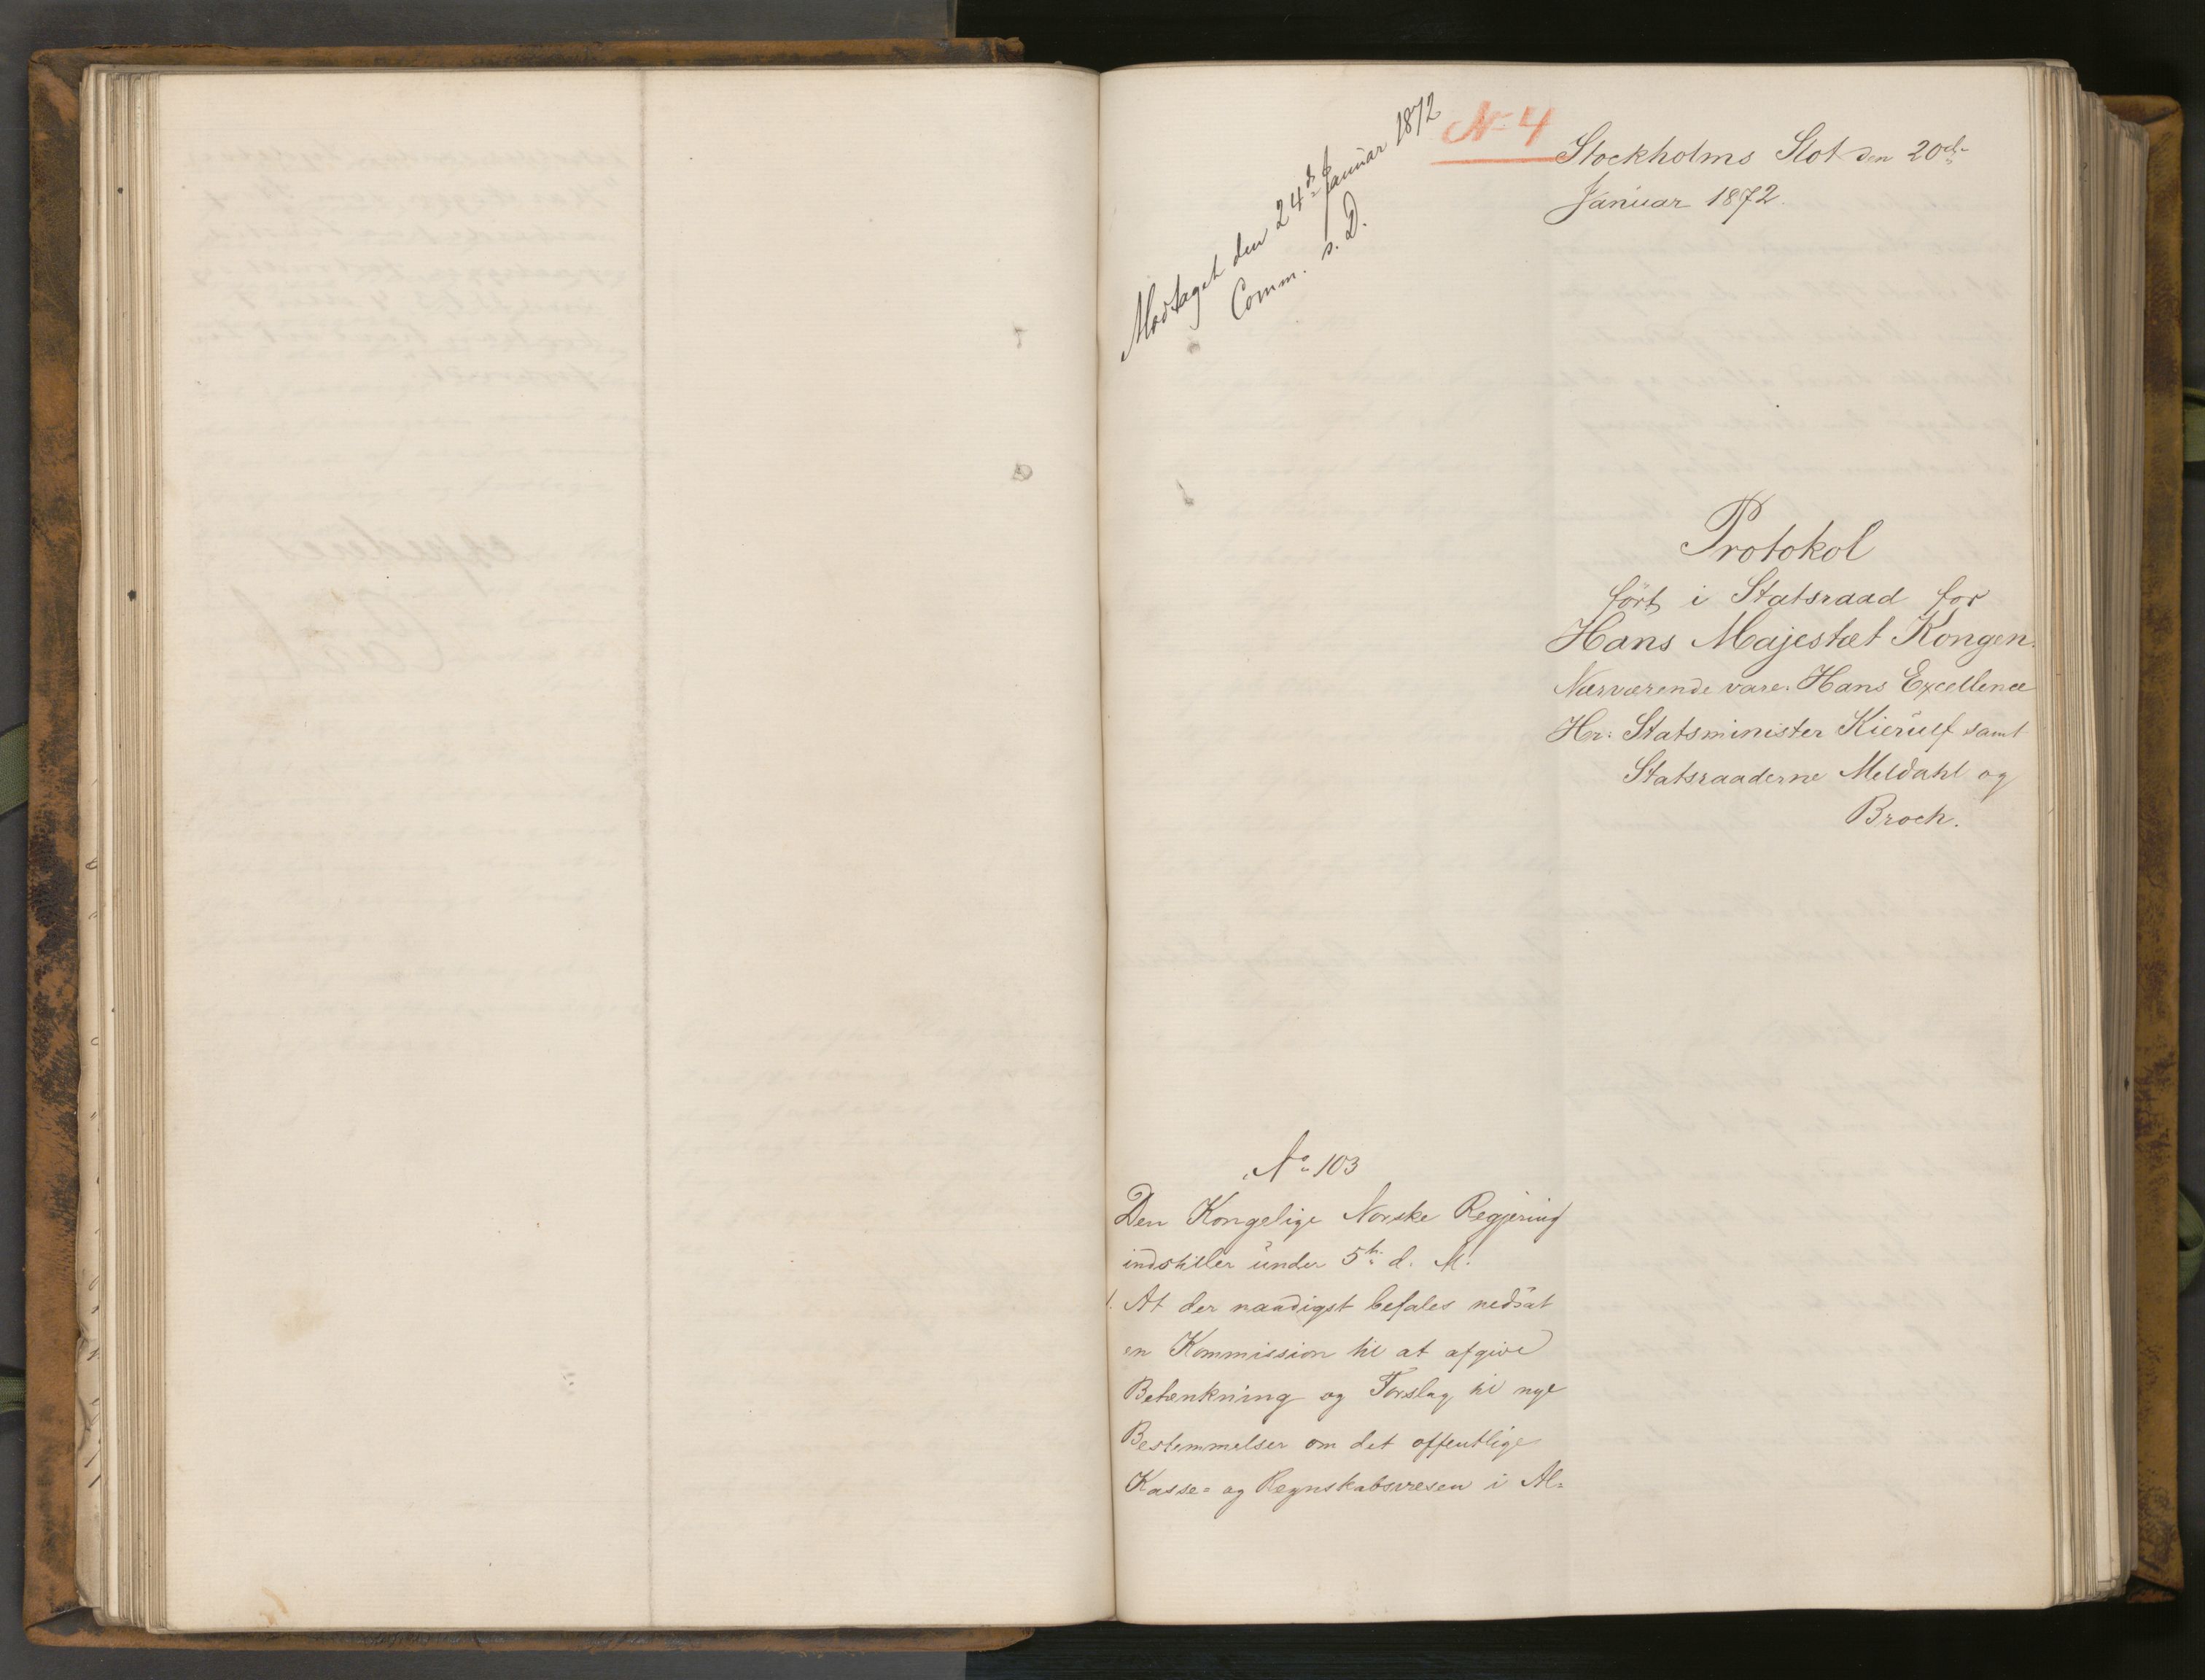 Modtaget den 24d Januar 1872
Comm. s. D.
No 4
Stockholms Slot den 20de
Januar 1872.
Protokol
ført i Statsraad for
Hans Majestæt Kongen.
Nærværende vare: Hans Excellence
Hr. Statsminister Kierulf samt
Statsraaderne Meldahl og
Broch.
No 103
Den Kongelige Norske Regjering
indstiller under 5te d. M.
1. At der naadigst befales nedsat
en Kommission til at afgive
Betænkning og Forslag til nye
Bestemmelser om det offentlige
Kasse= og Regnskabsvæsen i Al=